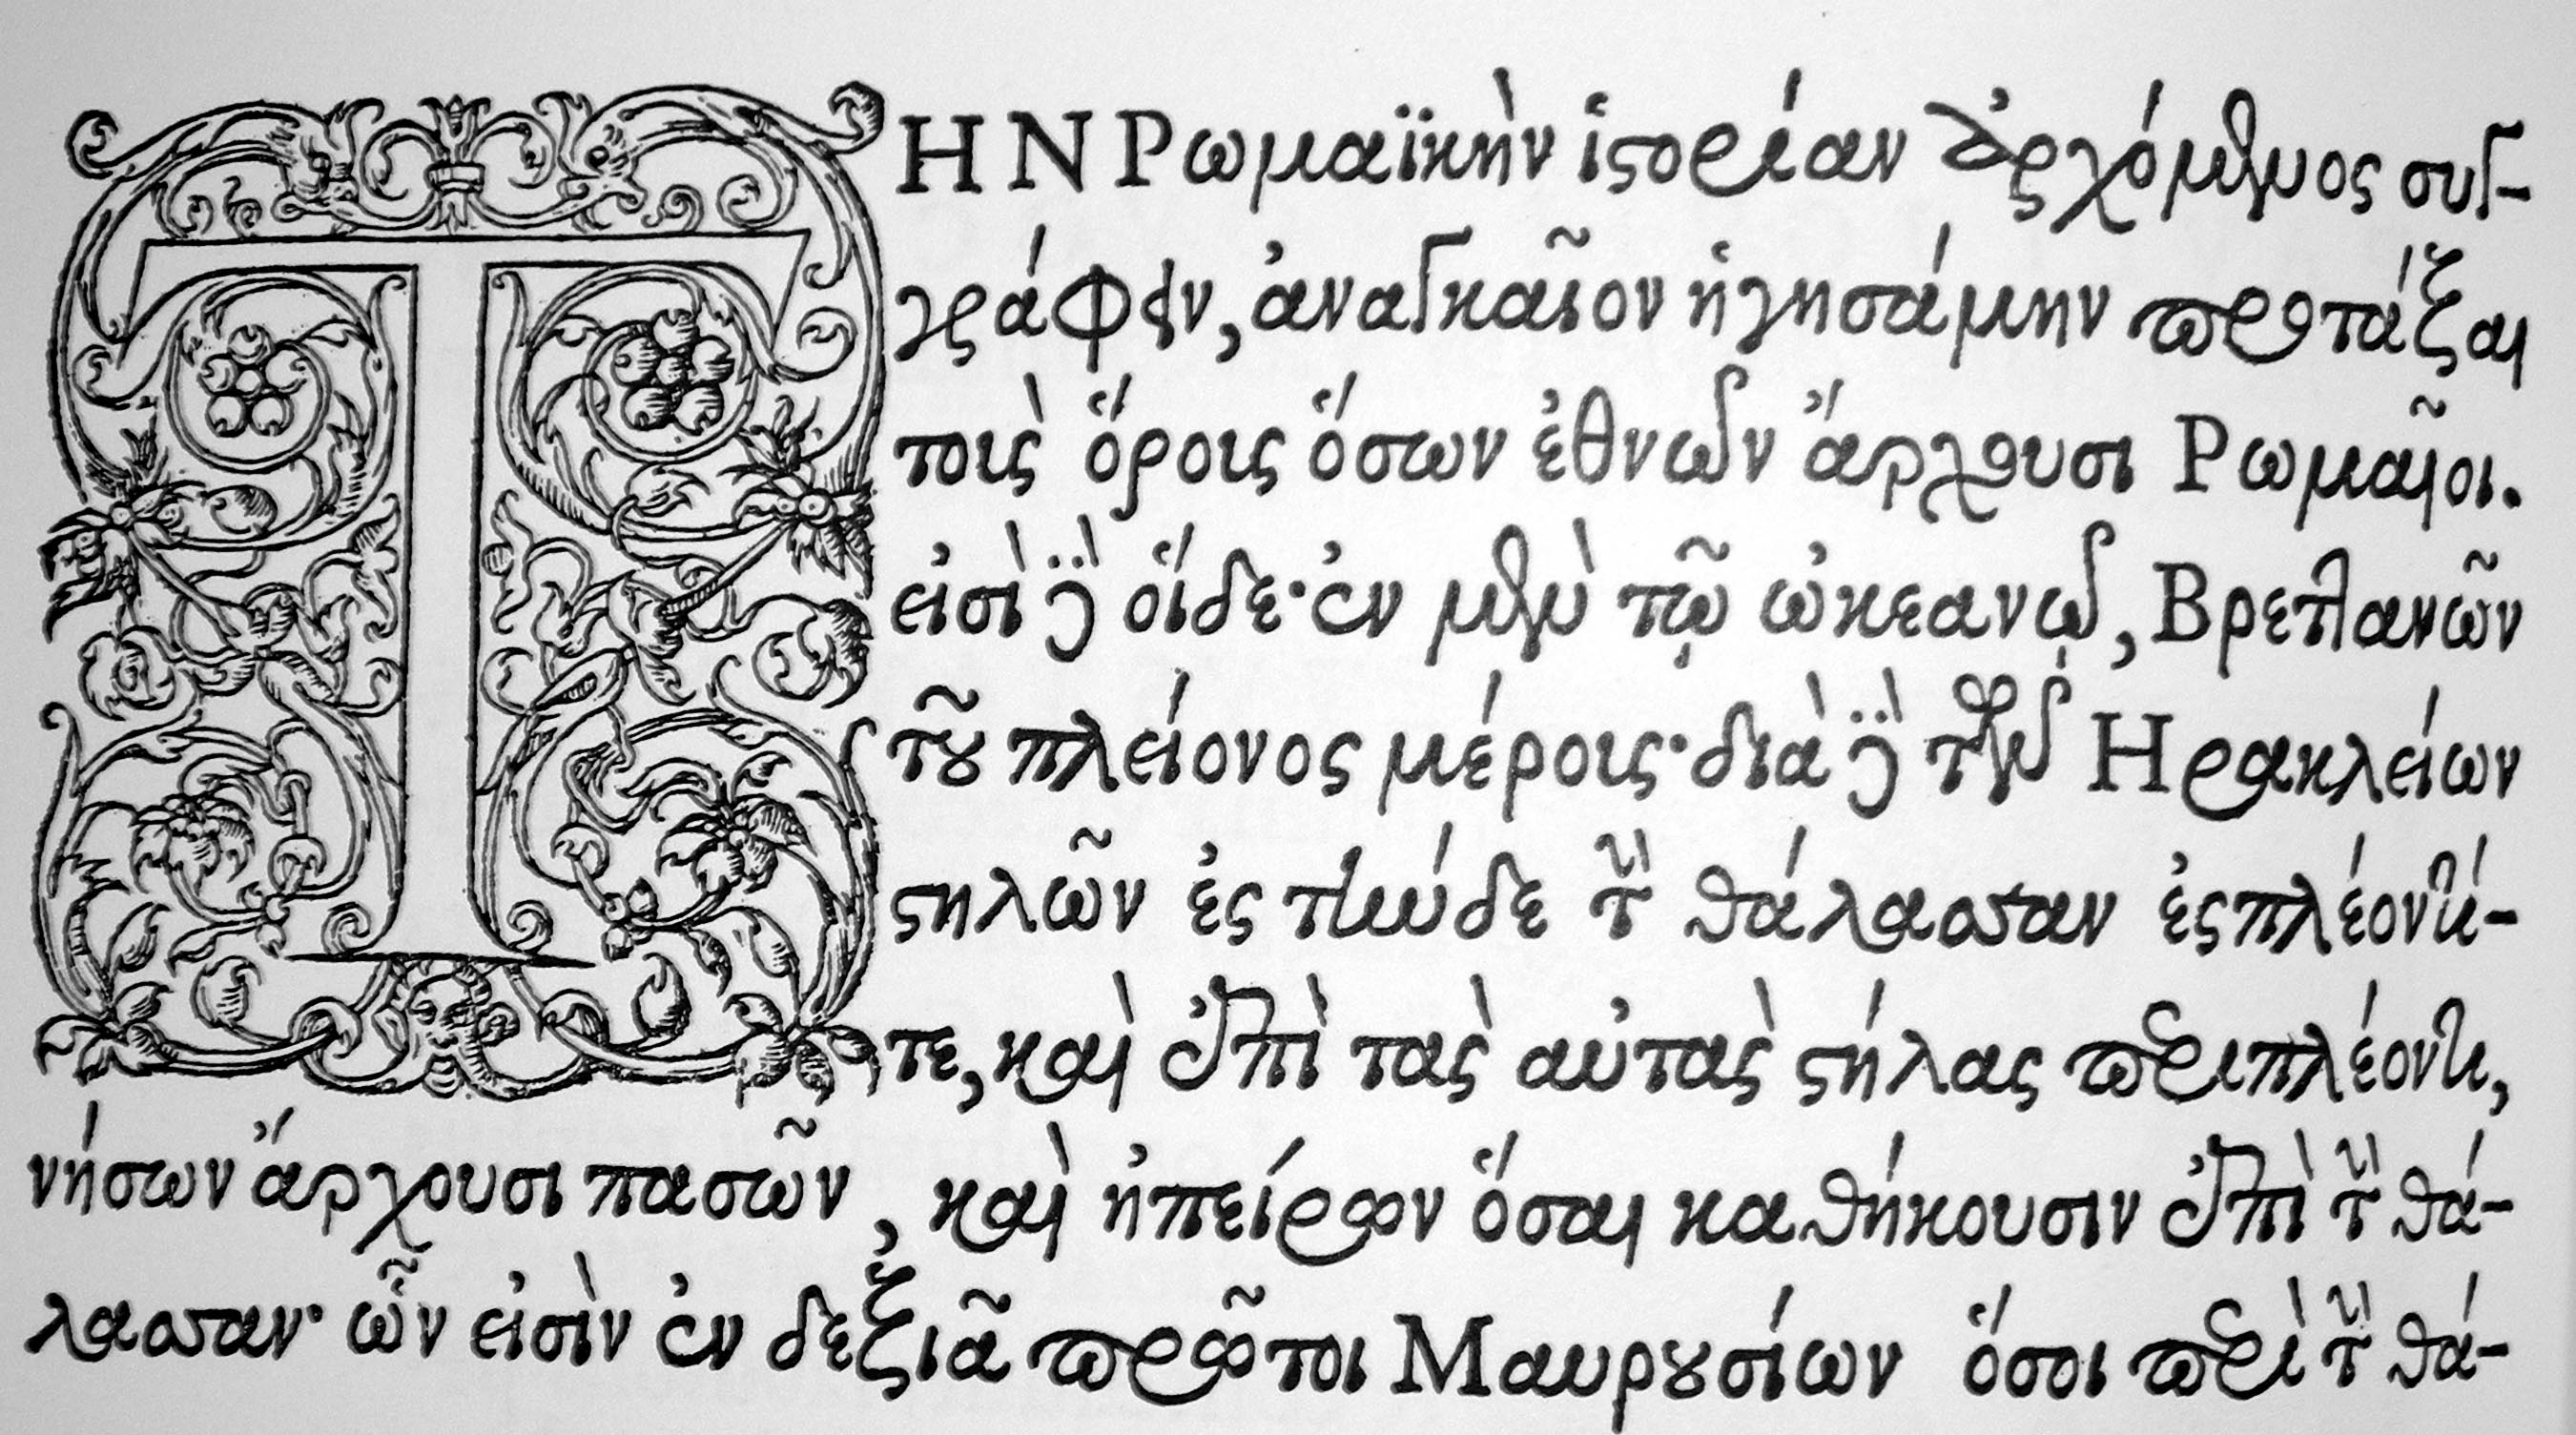 ΤΗΝ Ρωμαϊκὴν ἱστορίαν ἀρχόμενος συγ-
γράφειν, ἀναγκαῖον ἡγησάμην προτάξαι
τοὺς ὅρους ὅσων ἐθνῶν ἄρχουσι Ρωμαῖοι.
εἰσὶ δὲ οἵδε· ἐν μὲν τῷ ὠκεανῷ, Βρεττανῶν
τοῦ πλείονος μέρους· διὰ δὲ τῶν Ηρακλείων
στηλῶν ἐς τήνδε τὴν θάλασσαν ἐσπλέοντί-
τε, καὶ ἐπὶ τὰς αὐτὰς στήλας περιπλέοντι,
νήσων ἄρχουσι πασῶν, καὶ ἠπείρων ὅσαι καθήκουσιν ἐπὶ τὴν θά-
λασσαν· ὧν εἰσὶν ἐν δεξιᾷ πρῶτοι Μαυρουσίων ὅσοι περὶ τὴν θά-